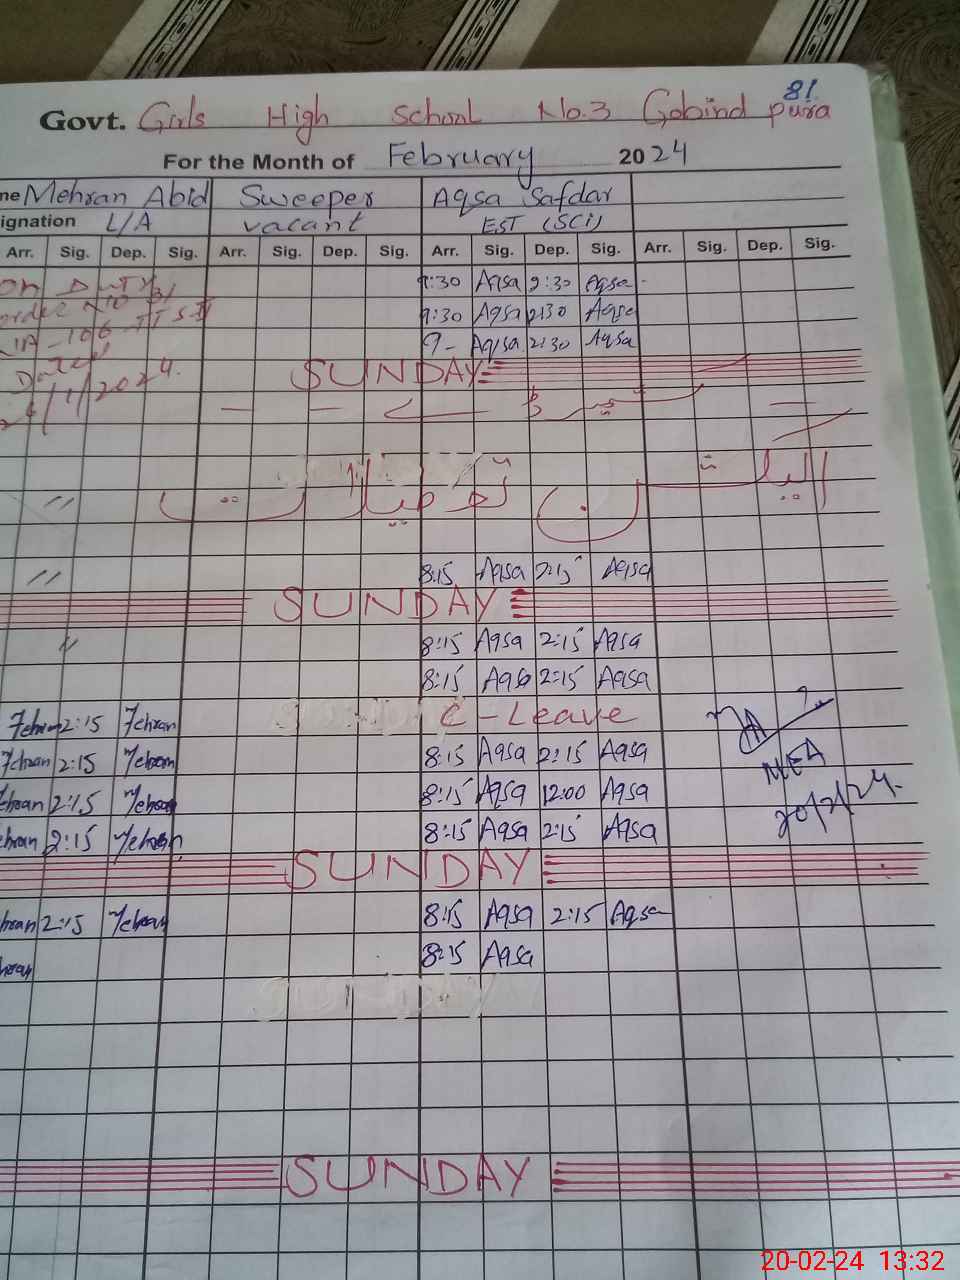 81
Govt. Girls High School No.3 Gobind pura
For the Month of February 2024
me Mehran Abid Sweeper Aqsa Safdar
ignation L/A vacant EST (SCi)
Arr. Sig. Dep. Sig. Arr. Sig. Dep. Sig. Arr. Sig. Dep. Sig. Arr. Sig. Dep. Sig.
on Duty 9:30 Aqsa 2:30 Aqsa
order No 31 9:30 Aqsa 2:30 Aqsa
9- Aqsa 2:30 Aqsa
Dated SUNDAY
24/1/2024.
الیکشن تعطیلات
"
" 8:15 Aqsa 2:15 Aqsa
SUNDAY
" 8:15 Aqsa 2:15 Aqsa
8:15 Aqsa 2:15 Aqsa
Mehran 2:15 Mehran C-Leave
Mehran 2:15 Mehran 8:15 Aqsa 2:15 Aqsa
MEA
ehran 2:15 Mehran 8:15 Aqsa 12:00 Aqsa
20/2/24.
ehran 2:15 Mehran 8:15 Aqsa 2:15 Aqsa
SUNDAY
hran 2:15 Mehran 8:15 Aqsa 2:15 Aqsa
hran 8:15 Aqsa
SUNDAY
SUNDAY
20-02-24 13:32